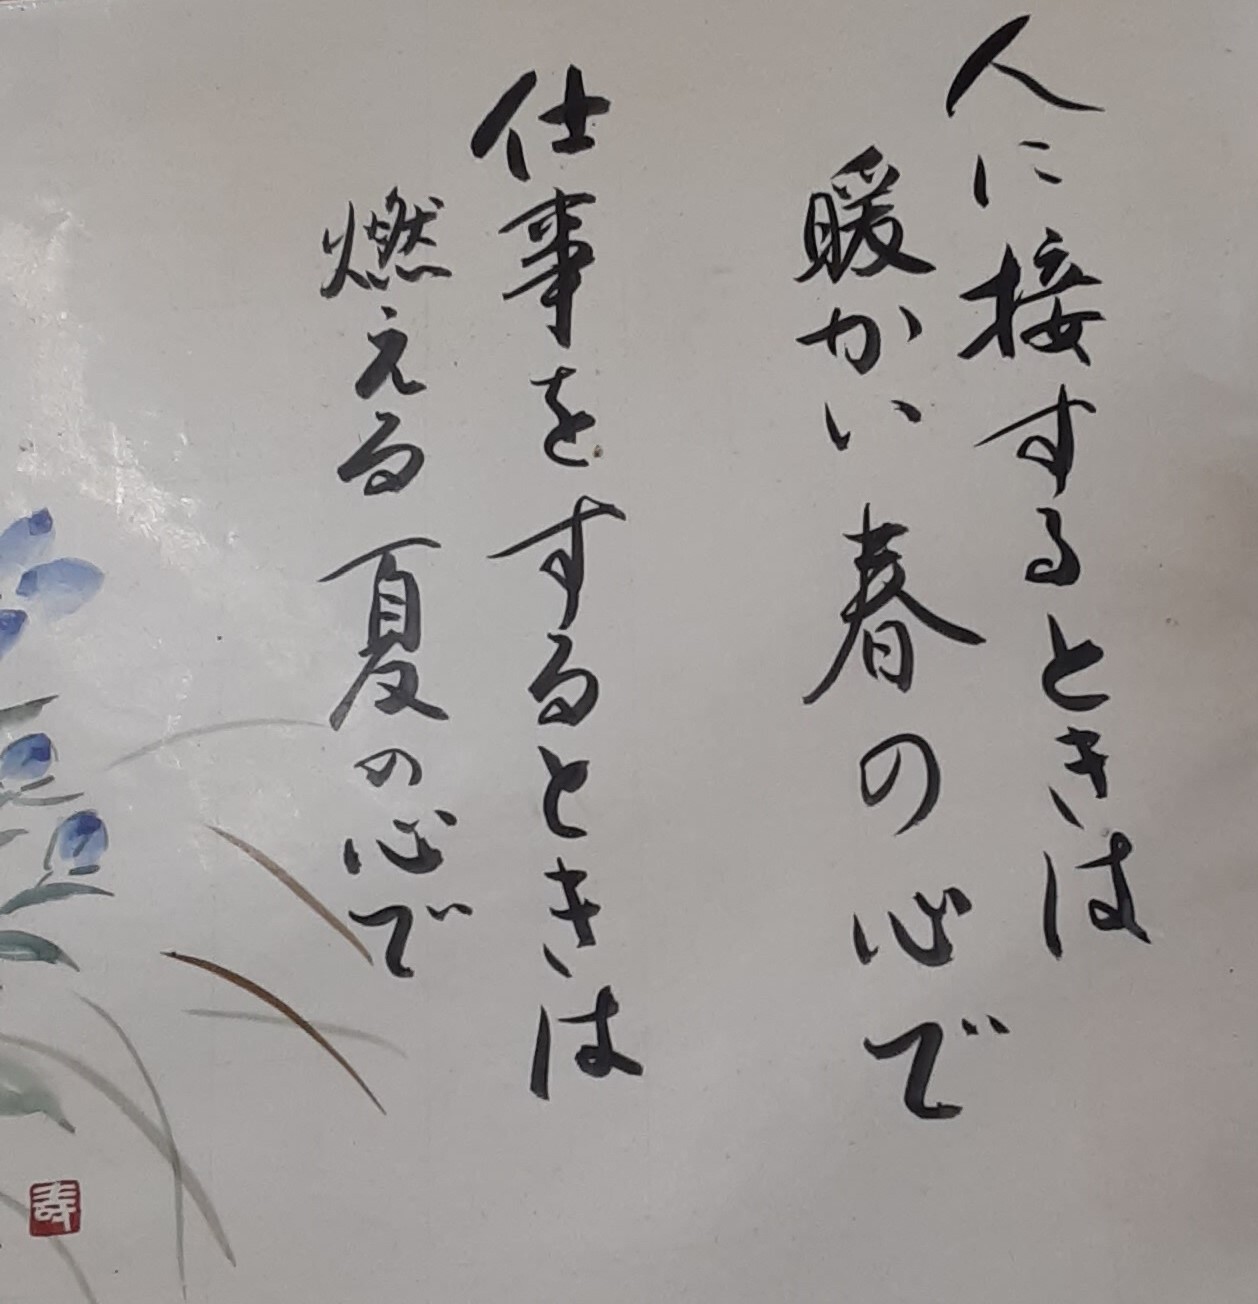 人に接するときは
暖かい春の心で
仕事をするときは
燃える夏の心で
寿